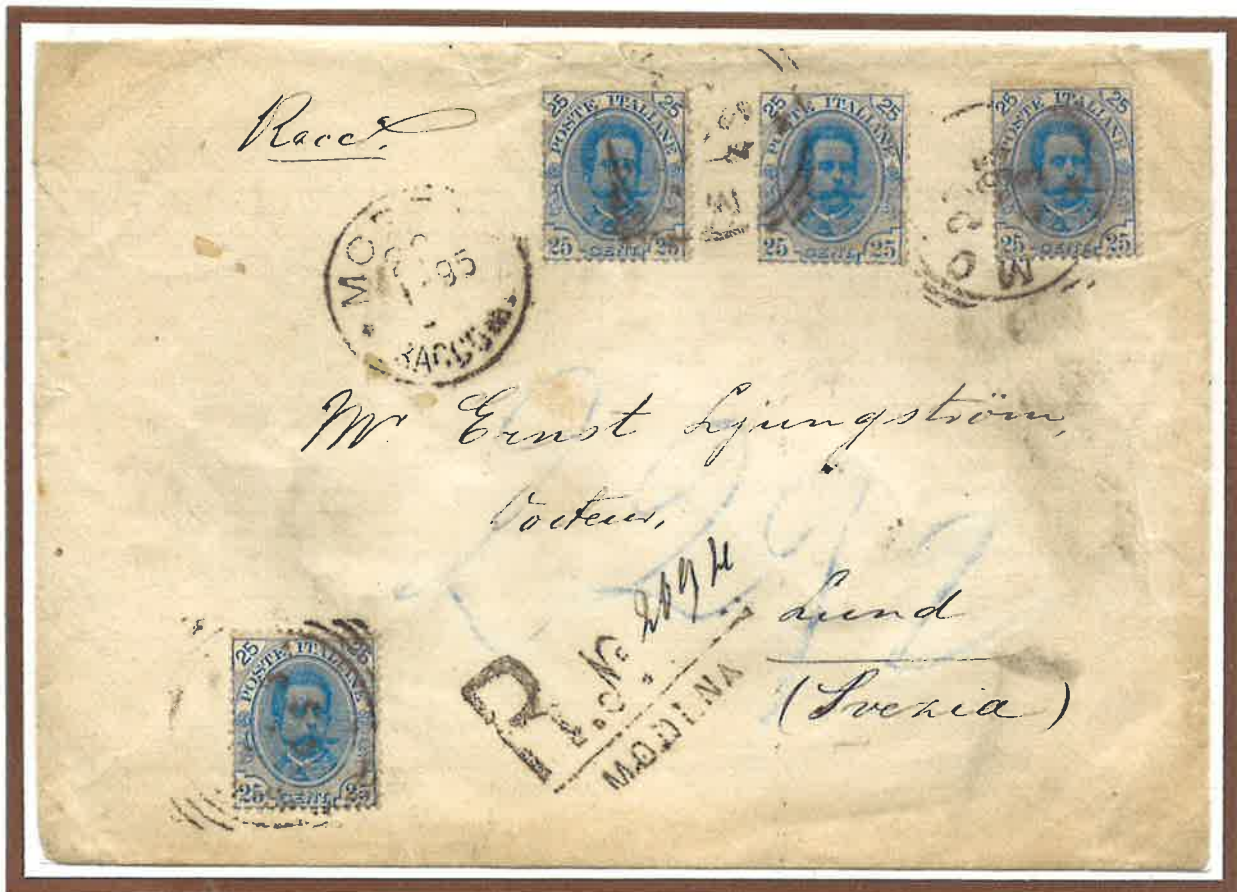 Racc.ª
25 25
POSTE ITALIANE
25 CENT. 25
25 25
POSTE ITALIANE
25 CENT. 25
25 25
POSTE ITALIANE
25 CENT. 25
MO
95
RACCOM
MO
Mr Ernst Ljungström,
Docteur,
Lund
(Svezia)
R No
MODENA
25 25
POSTE ITALIANE
25 CENT. 25